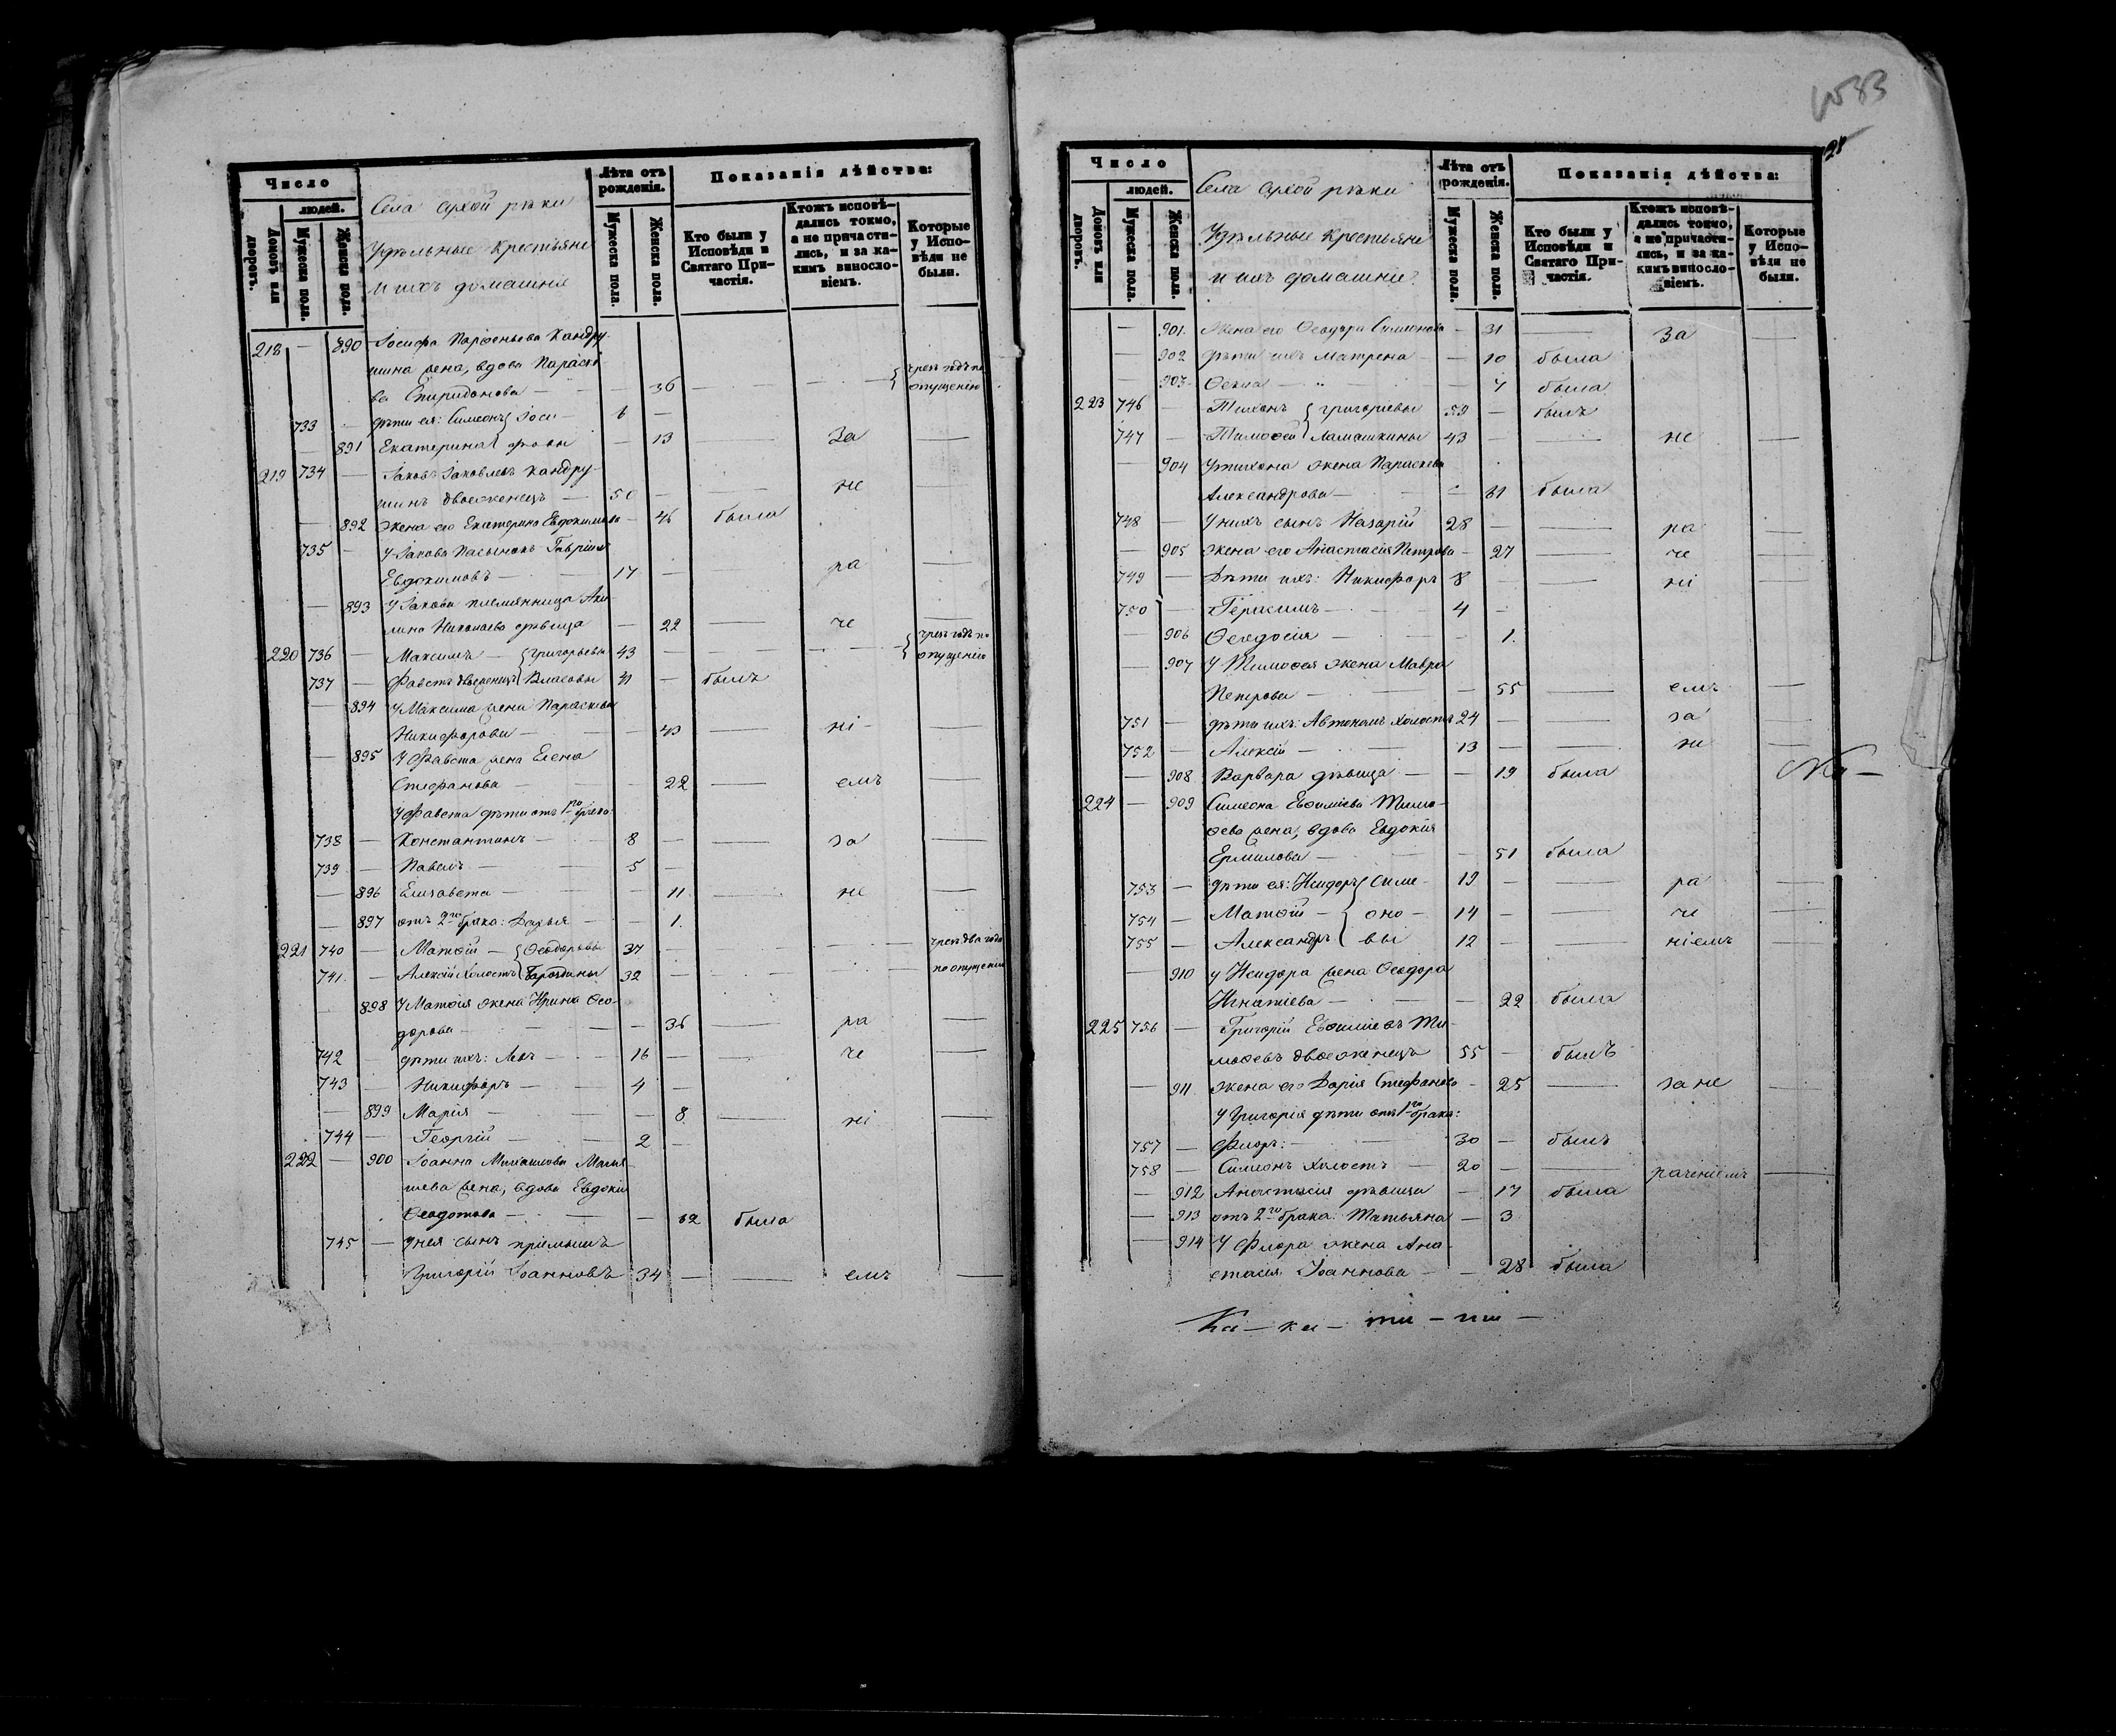 Число
людей.
Домовъ или дворовъ.
Мужеска пола.
Женска пола.
Села Сухой рѣки
Удѣльные Крестьяне
и ихъ домашніе
Лѣта отъ рожденія.
Мужеска пола.
Женска пола.
Показанія дѣйства:
Кто были у Исповѣди и Святаго Причастія.
Ктожъ исповѣдались токмо, а не причастились, и за какимъ винословіемъ.
Которые у Исповѣди не были.
218 — 890 Іосифа Парѳеньева Кандру-
шина жена, вдова Параске-
ва Спиридонова — — 36 — — чрезъ годъ по опущенію
733 — дѣти ея: Симеонъ { Іоси- 6 —
— 891 Екатерина { фовы — 13 — За —
219 734 — Іаковъ Іаковлевъ Кандру-
шинъ двоеженецъ — 50 — — не —
— 892 жена его Екатерина Евдокимова — 46 была
735 — У Іакова пасынокъ Гавріилъ
Евдокимовъ — 17 — — ра —
— 893 У Іакова племянница Аки-
лина Николаева дѣвица — 22 — че —
220 736 — Максимъ — { Григорьевы 43 — — — { чрезъ годъ по опущенію
737 — Фавстъ двоеженецъ { Власовы 41 — былъ
— 894 У Максима жена Параскева
Никифорова — — 43 — ні —
— 895 У Фавста жена Елена
Стефанова — 22 — емъ —
У Фавста дѣти отъ 1го брака:
738 — Константинъ — 8 — — за —
739 — Павелъ — 5 —
— 896 Елизавета — — 11 — не —
— 897 отъ 2го брака: Дарья — — 1.
221 740 — Матѳій — { Ѳеодоровы 37 — — — чрезъ два года
741 — Алексій холостъ { Бароздины 32 — — — по опущенію
— 898 У Матѳія жена Ирина Ѳео-
дорова — — 36 — ра —
742 — дѣти ихъ: Левъ — 16 — — че —
743 — Никифоръ — 4 —
— 899 Марія — — 8 — ні —
744 — Георгій — 2 —
222 — 900 Іоанна Михаилова
жена, вдова Евдокія
Ѳеодотова — — 62 была
745 — У нея сынъ пріемышъ
Григорій Іоанновъ 34 — — емъ —
28
Число
людей.
Домовъ или дворовъ.
Мужеска пола.
Женска пола.
Села Сухой рѣки
Удѣльные Крестьяне
и ихъ домашніе
Лѣта отъ рожденія.
Мужеска пола.
Женска пола.
Показанія дѣйства:
Кто были у Исповѣди и Святаго Причастія.
Ктожъ исповѣдались токмо, а не причастились, и за какимъ винословіемъ.
Которые у Исповѣди не были.
— 901. Жена его Ѳеодора Симеонова — 31 — За —
— 902 дѣти ихъ Матрена — — 10 была
— 903 Ѳекла — — 7 была
223 746 — Тихонъ { Григорьевы 59 — былъ
747 — Тимоѳей { Ламашкины 43 — — не —
— 904 У Тихона жена Параскева
Александрова — — 61 была
748 — У нихъ сынъ Назарій 28 — — ра —
— 905 жена его Анастасія Петрова — 27 — че —
749 — Дѣти ихъ: Никифоръ 8 — — ні —
750 — Герасимъ — 4 —
— 906 Ѳеодосія — — 1.
— 907 У Тимоѳея жена Мавра
Петрова — — 55 — емъ —
751 — дѣти ихъ: Автономъ холостъ 24 — — за —
752 — Алексій — 13 — — не —
— 908 Варвара дѣвица — — 19 была
224 — 909 Симеона Евѳиміева Тимо-
ѳева жена, вдова Евдокія
Ермилова — — 51 была
753 — дѣти ея: Исидоръ { Симе- 19 — — ра —
754 — Матѳій — { оно- 14 — — че —
755 — Александръ { вы 12 — — ніемъ —
— 910 у Исидора жена Ѳеодора
Игнатіева — — 22 была
225 756 — Григорій Евѳиміевъ Ти-
моѳевъ двоеженецъ 55 — былъ
— 911 жена его Дарія Стефанова — 25 — за не —
У Григорія дѣти отъ 1го брака:
757 — Флоръ: — 30 — былъ
758 — Симеонъ холостъ — 20 — — раченіемъ —
— 912 Анастасія дѣвица — 17 была
— 913 отъ 2го брака: Татьяна — 3
— 914 У Флора жена Ана-
стасія Іоаннова — — 28 была